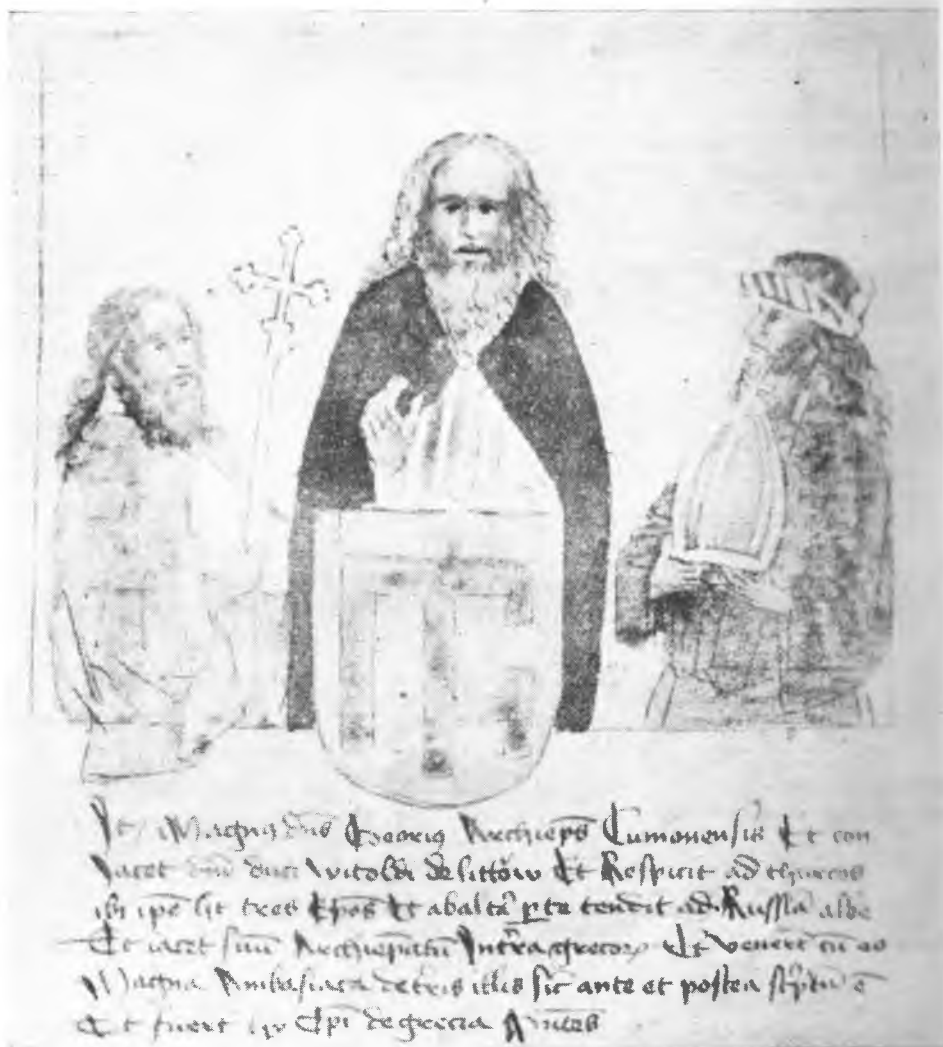 Itē Magnus dn̄s Georius Archiep̄s Cumonensis Et con
Iacet dn̄o duci witoldi de littow Et Respicit ad thurcos
ibi ip̄e ht tres Ep̄os Et ab alt̄a p̄te tendit ad Russiā albā
Et iacet suū Archiep̄atū Intra grecos Et venert cū eo
Magna Ambasiata de t̄ris illis sic ante et postea sc̄ptū ē
Et fuert Ep̄i de grecia